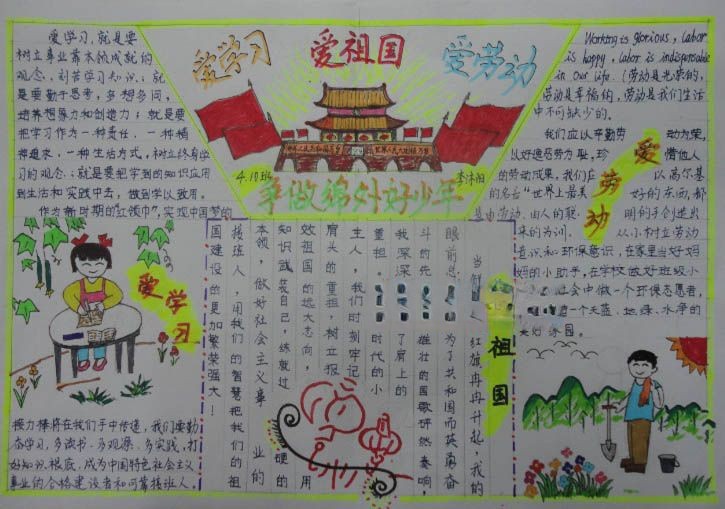 爱学习
爱祖国
爱劳动
4.10班
争做绵外好少年
爱学习,就是要
树立事业靠本领成就的
观念,刻苦学习知识;就
是要勤于思考,多想多问,
培养想象力和创造力;就是要
把学习作为一种责任、一种精
神追求、一种生活方式,树立终身学
习的观念;就是要把学到的知识应用
到生活和实践中去,做到学以致用。
作为新时期的红领巾,实现中国梦的
爱学习
接力棒将在我们手中传递,我们要勤
奋学习,多读书、多观察、多实践,打
好知识根底,成为中国特色社会主义
事业的合格建设者和可靠接班人。
祖国
红旗冉冉升起,我的
眼前总
为了共和国而英勇奋
斗的先
雄壮的国歌
奏响,
我深深
了肩上的
重担
时代的小
主人,我们时刻牢记
肩头的重担,树立报
效祖国的远大志向,用
知识武装自己,练就过硬的
本领,做好社会主义事业的
接班人,用我们的智慧把我们的祖
国建设的更加繁荣强大!
Working is glorious, labor
is happy, labor is indispensable
in our life. (劳动是光荣的,
劳动是幸福的,劳动是我们生活
中不可缺少的。
我们应以辛勤劳动为荣,
以好逸恶劳为耻,珍惜他人
的劳动成果,我们应以高尔基
的名言"世界上最美好的东西,都
是由劳动、由人的聪明的手创造出
来的为训,从小树立劳动
意识和环保意识,在家里当好妈
妈的小助手,在学校做好班级小
会中做一个环保志愿者,
一个天蓝、地绿、水净的
美好家园。
爱劳动